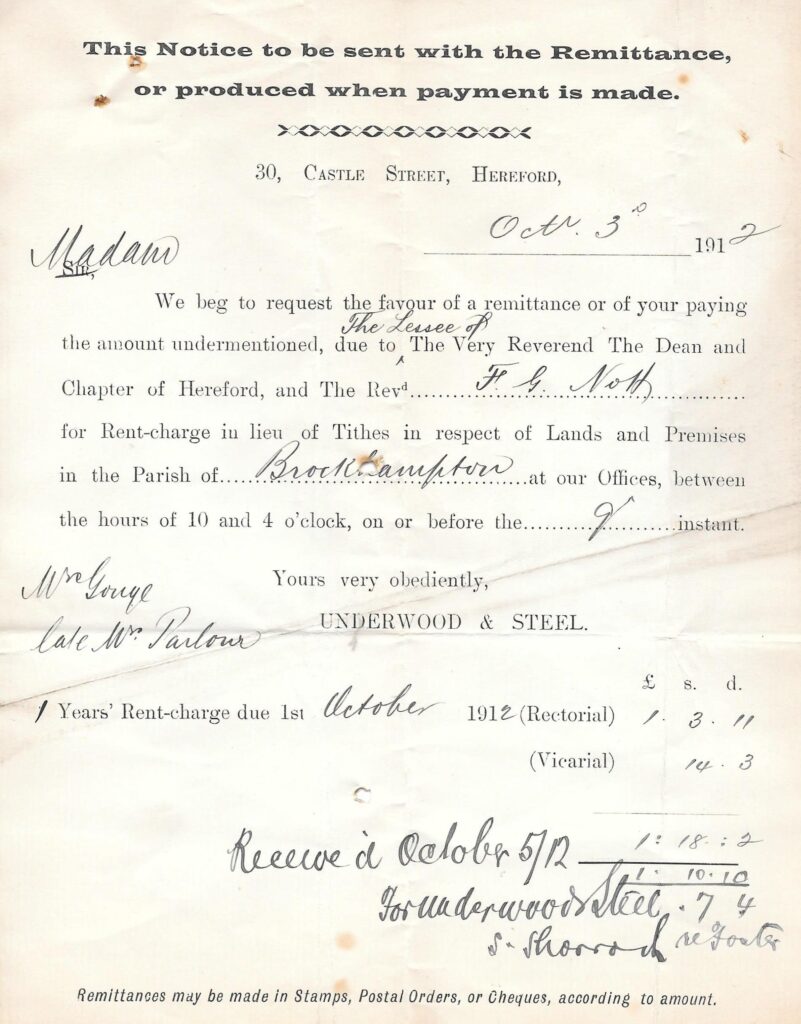 This Notice to be sent with the Remittance,
or produced when payment is made.
30, Castle Street, Hereford,
Octr. 3rd 1912
Madam
Sir,
We beg to request the favour of a remittance or of your paying
The Lessee of
the amount undermentioned, due to The Very Reverend The Dean and
Chapter of Hereford, and The Revd. F. G. Nott
for Rent-charge in lieu of Tithes in respect of Lands and Premises
in the Parish of Brockhampton at our Offices, between
the hours of 10 and 4 o'clock, on or before the 9 instant.
Yours very obediently,
Mrs Gouge
UNDERWOOD & STEEL.
late Mr. Parlour
£ s. d.
1 Years' Rent-charge due 1st October 1912 (Rectorial) 1 . 3 . 11
(Vicarial) 14 . 3
Received October 5/12 1 : 18 : 2
1 . 10 . 10
For Underwood & Steel . 7 4
S. re Foster
Remittances may be made in Stamps, Postal Orders, or Cheques, according to amount.